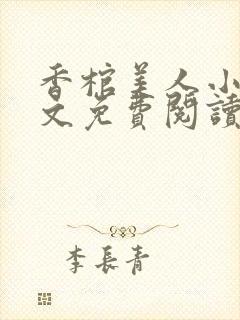 香棺美人小
文免費閱讀
李長青